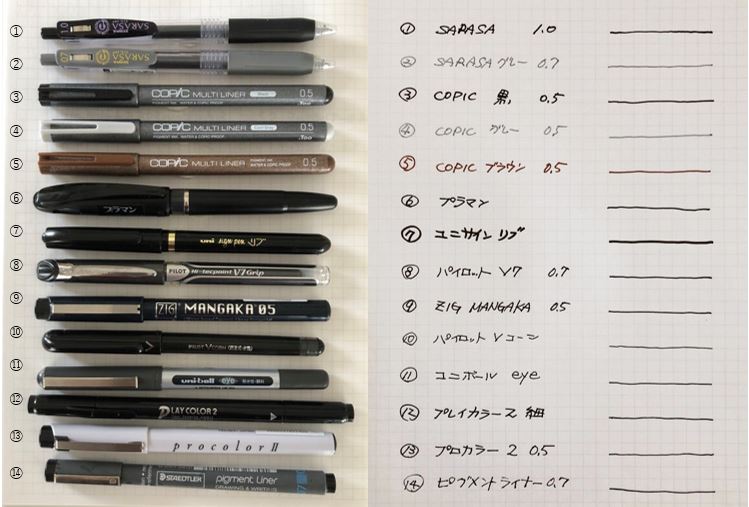 ① 1.0 SARASA
② 0.7 SARASA
③ COPIC MULTI LINER Black 0.5
PIGMENT INK, WATER & COPIC PROOF .Too
④ COPIC MULTI LINER Cool Gray 0.5
PIGMENT INK, WATER & COPIC PROOF .Too
⑤ COPIC MULTI LINER PIGMENT INK WATER & COPIC PROOF 0.5
⑥ プラマン
⑦ uni sign pen リブ
⑧ PILOT Hi-tecpoint V7 Grip
⑨ ZIG MANGAKA 05
⑩ PILOT V CORN
⑪ uni-ball eye
⑫ PLAY COLOR 2
⑬ procolor II
⑭ STAEDTLER pigment liner
DRAWING & WRITING
① SARASA 1.0
② SARASA グレー 0.7
③ COPIC 黒 0.5
④ COPIC グレー 0.5
⑤ COPIC ブラウン 0.5
⑥ プラマン
⑦ ユニサイン リブ
⑧ パイロット V7 0.7
⑨ ZIG MANGAKA 0.5
⑩ パイロット Vコーン
⑪ ユニボール eye
⑫ プレイカラー2 細
⑬ プロカラー 2 0.5
⑭ ピグメントライナー 0.7